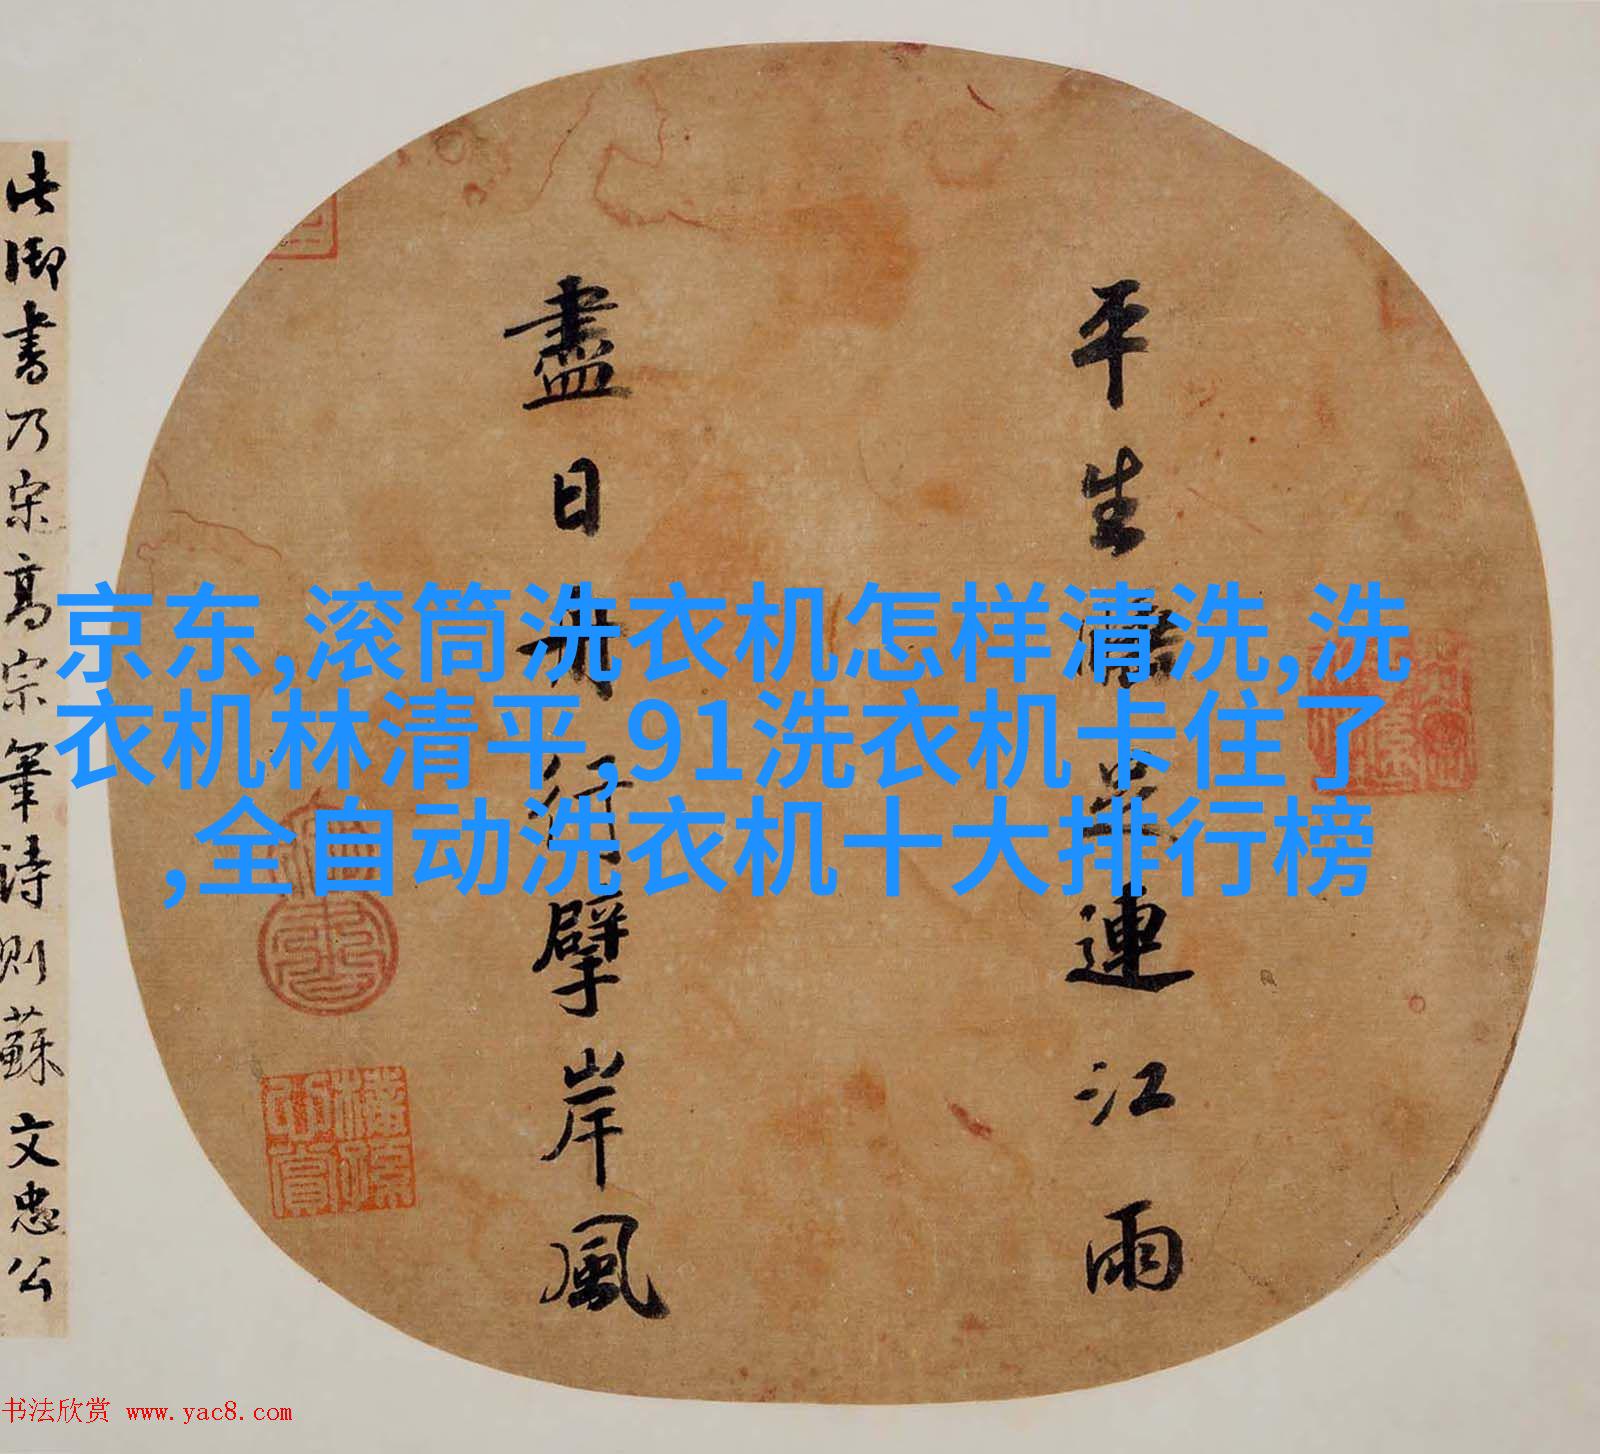 京东,滚筒洗衣机怎样清洗,洗
衣机林清平,91洗衣机卡住了
,全自动洗衣机十大排行榜
平生睡足連江雨
盡日舟行擘岸風
此御書乃宋高宗筆詩則蘇文忠公
书法欣赏 www.yac8.com